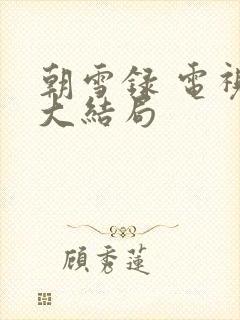 朝雪録 電視
大結局
顧秀蓮